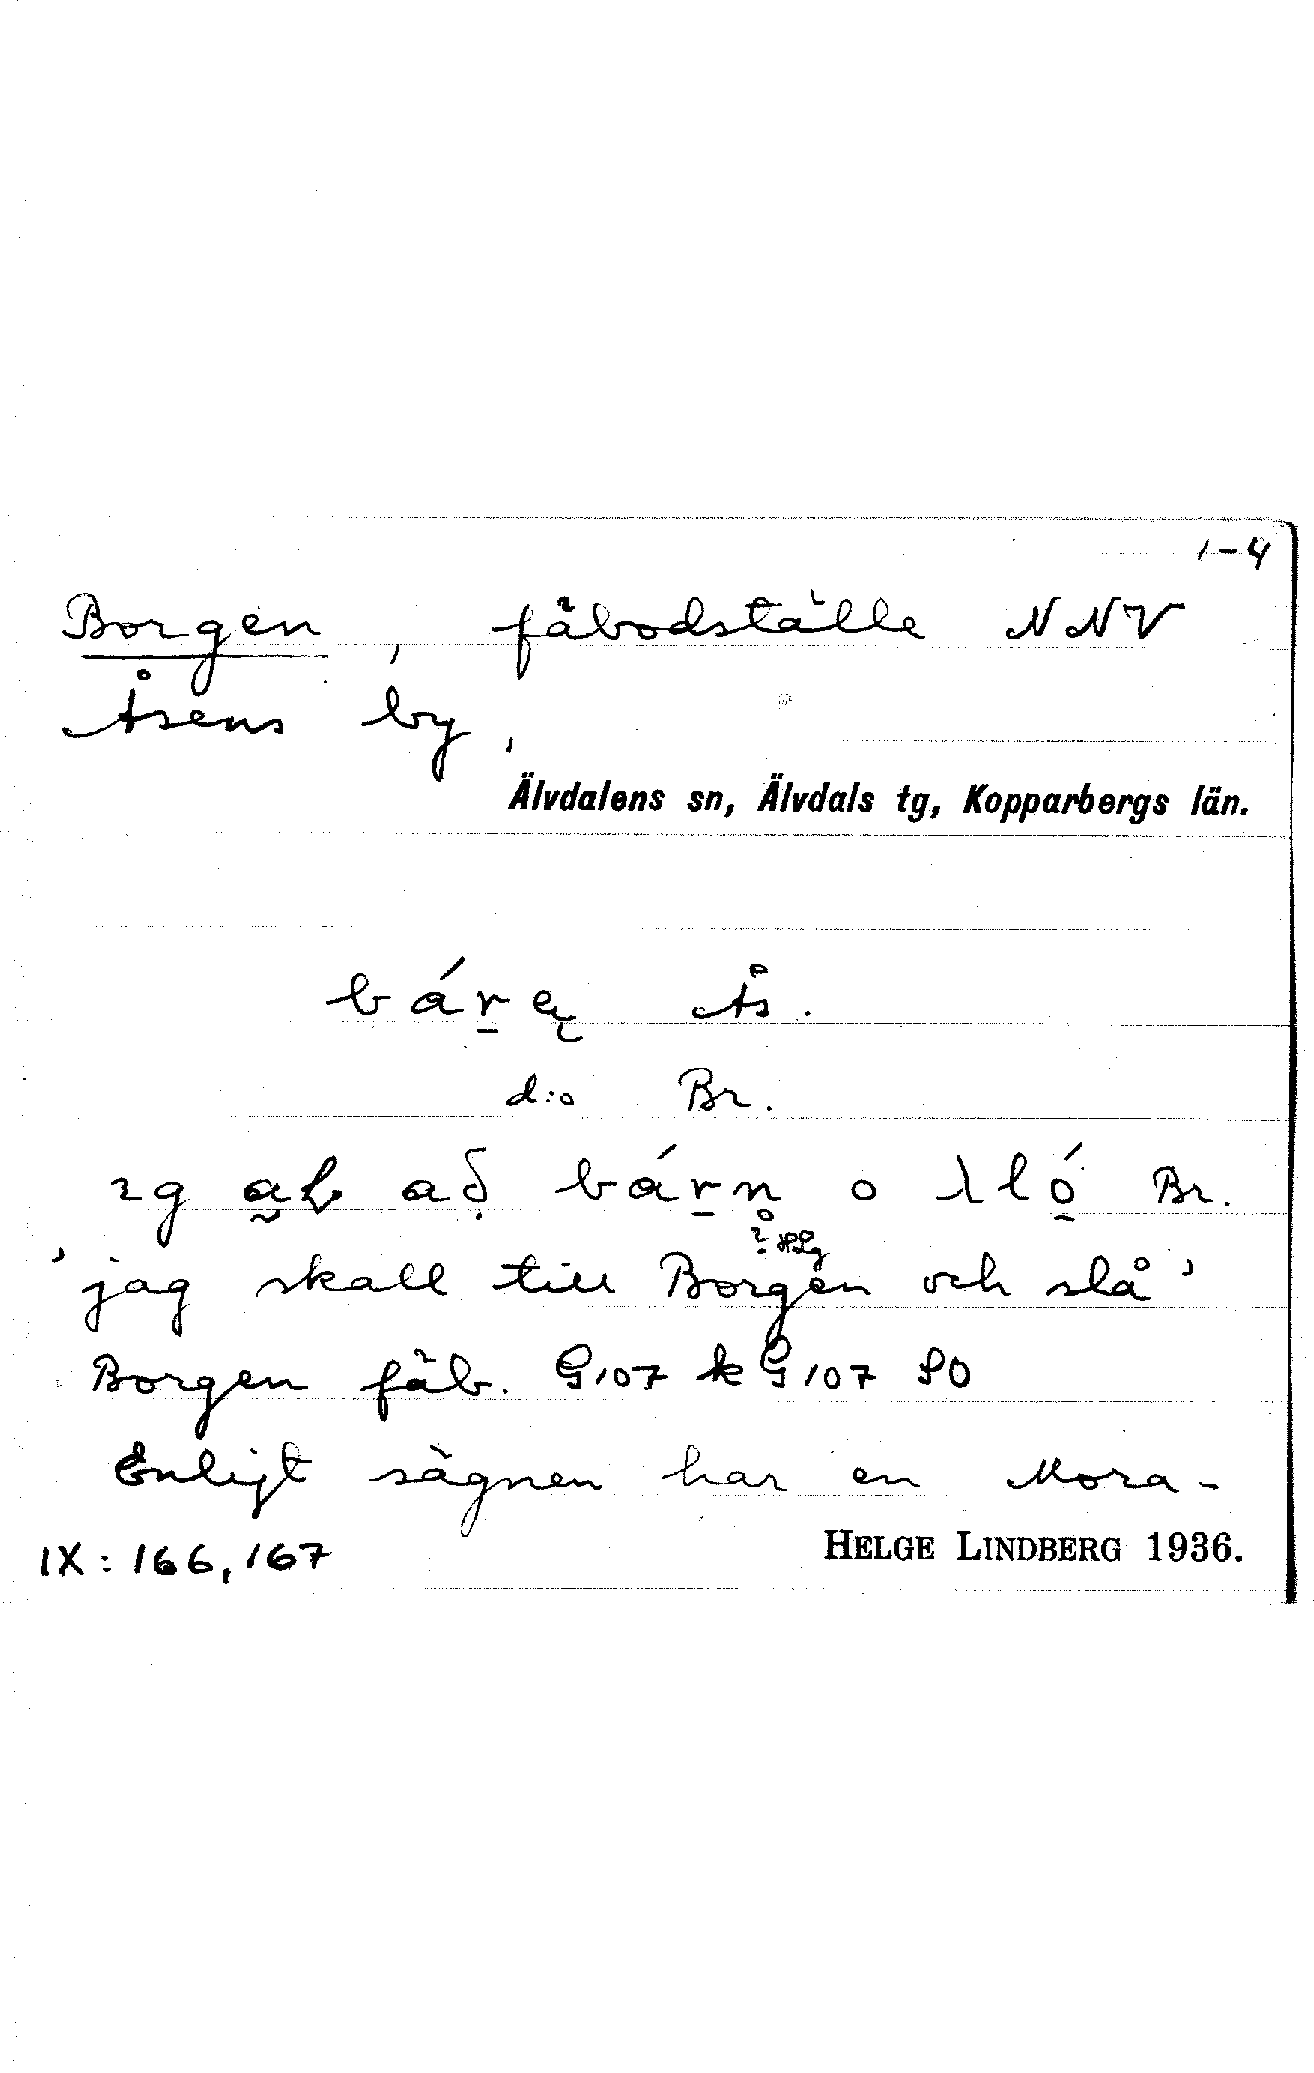 1-4
Borgen, fäbodställe NNV
Åsens by,
Älvdalens sn, Älvdals tg, Kopparbergs län.
bárę Ås.
d:o Br.
ag að bárn̥ o Br.
? HLg
'jag skall till Borgen och slå'
Borgen fäb. G107 k G107 SO
Enligt sägnen har en Mora-
IX: 166, 167 HELGE LINDBERG 1936.